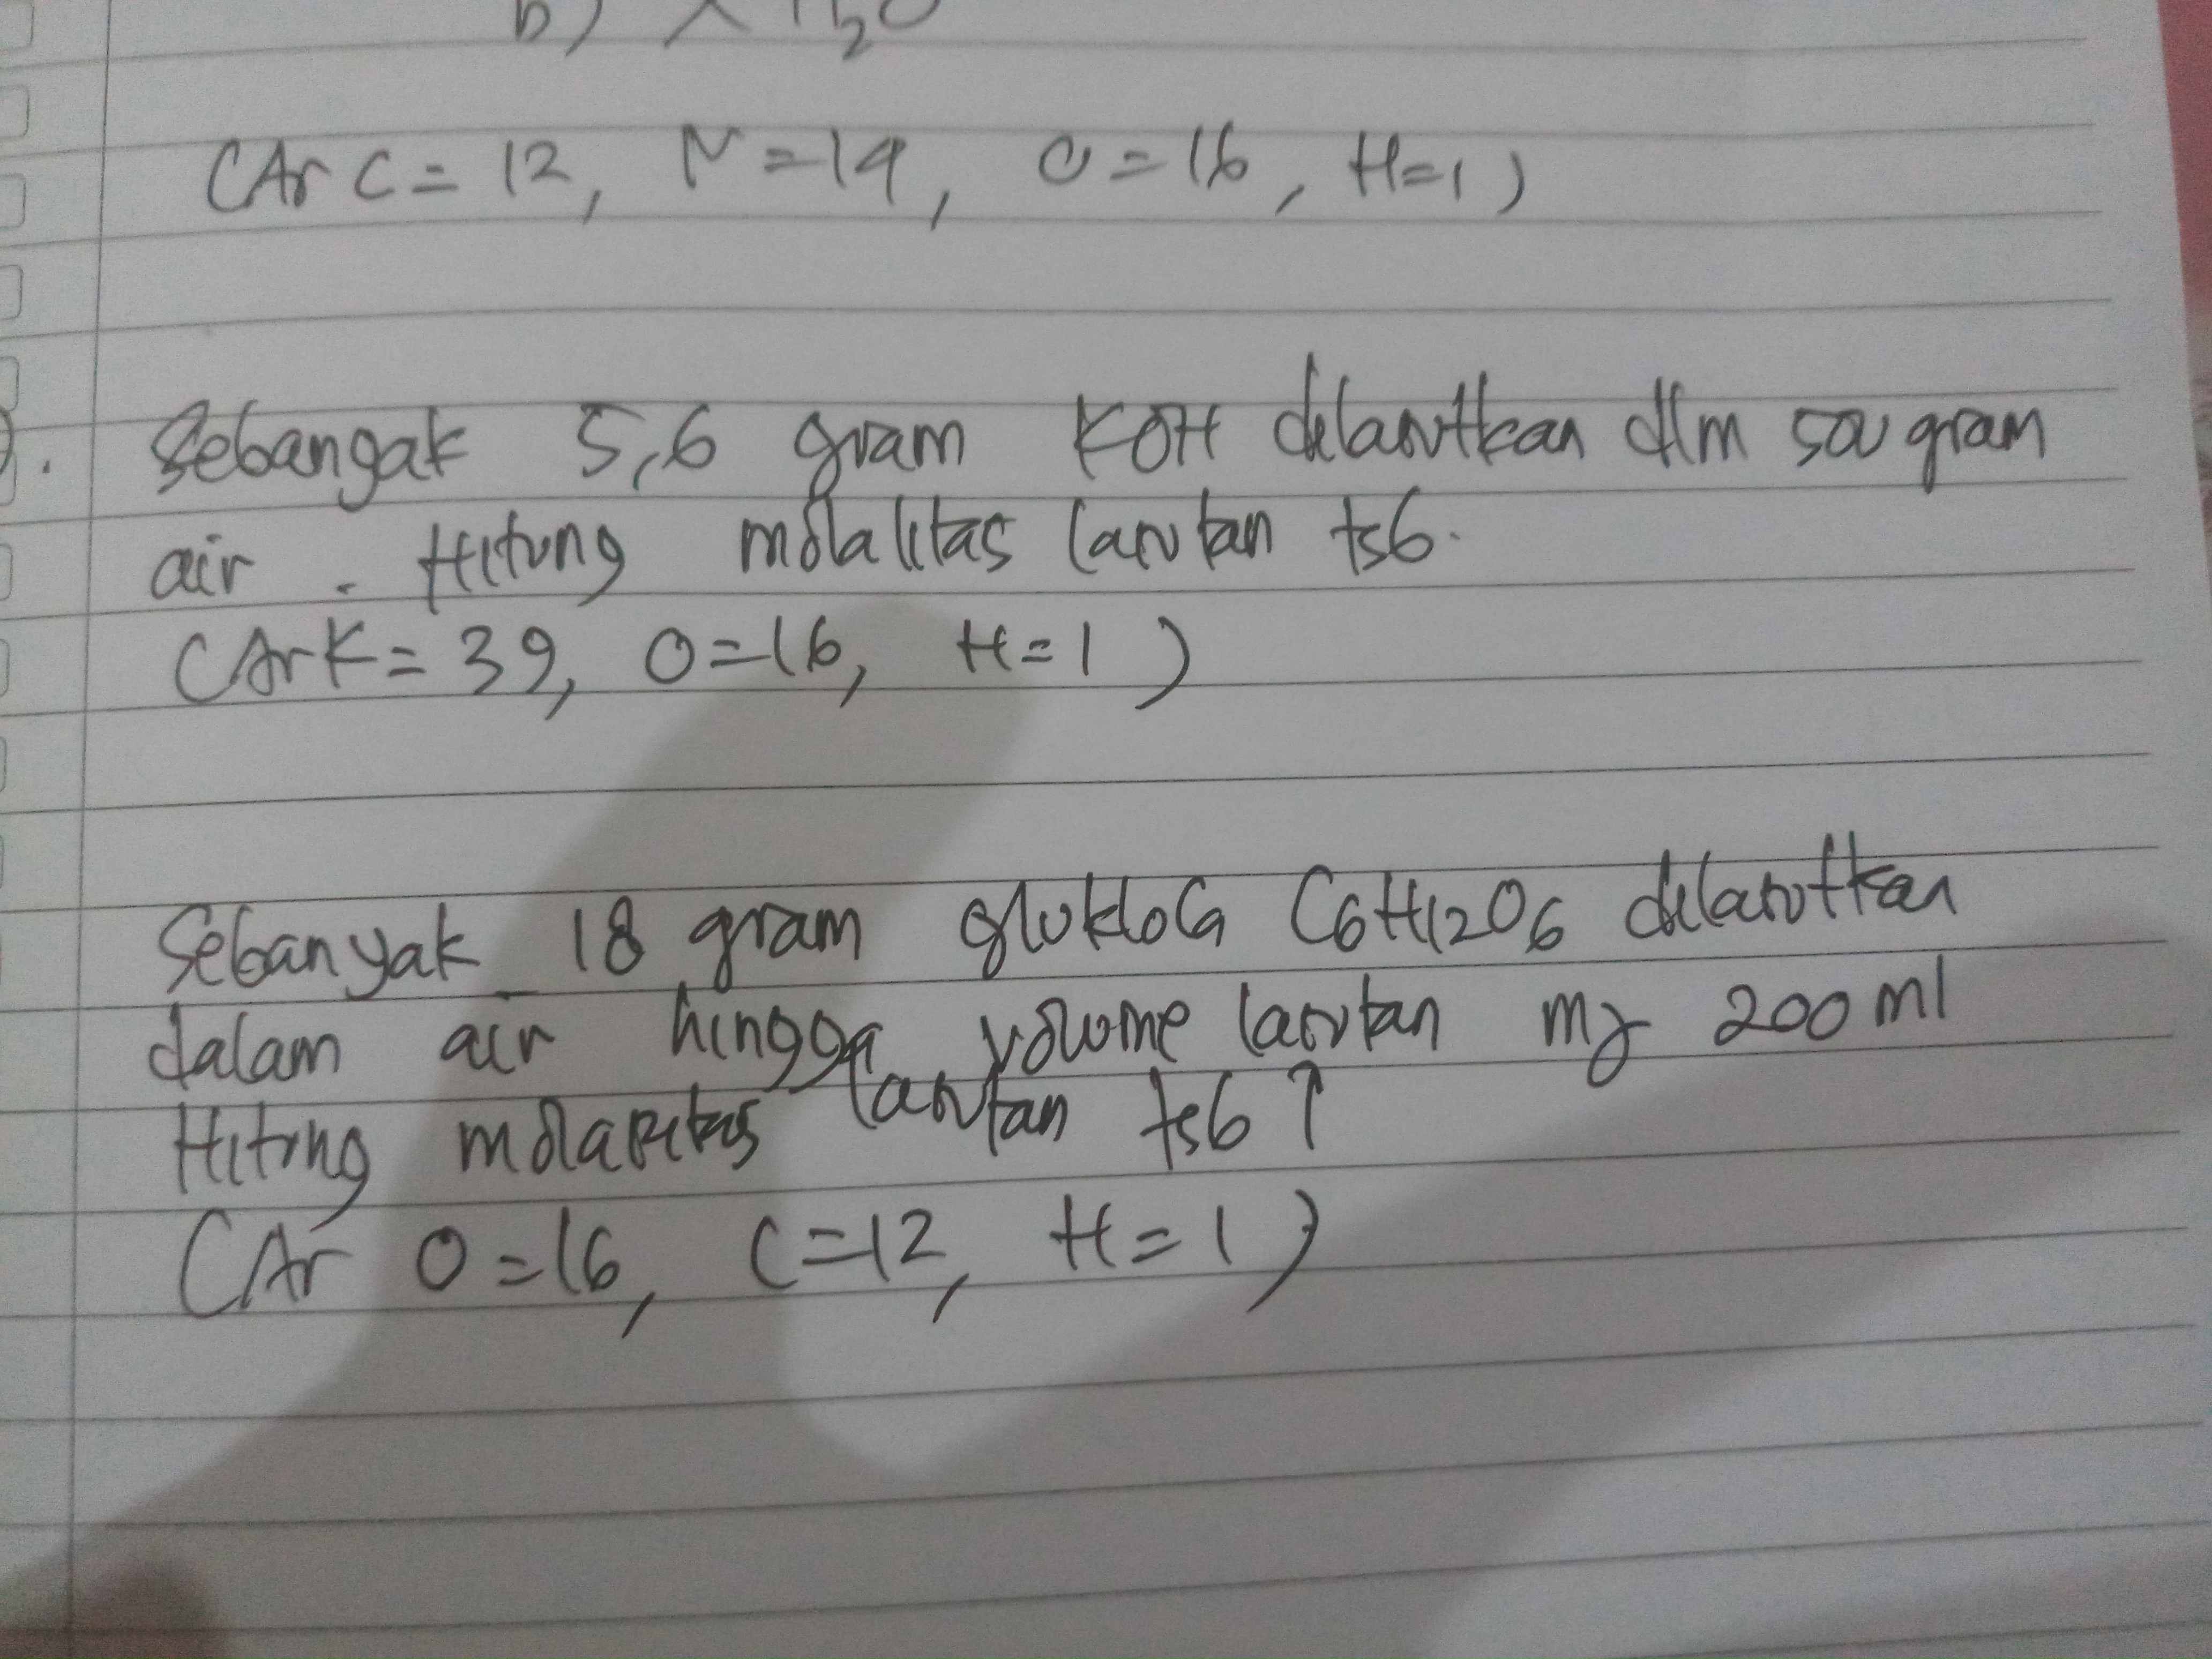 (Ar C = 12, N = 14, O = 16, H = 1)
Sebangak 5,6 gram KOH dilarutkan dlm 500 gram
air. Hitung molalitas larutan tsb.
(Ar K = 39, O = 16, H = 1)
Sebanyak 18 gram glukosa C6H12O6 dilarutkan
dalam air hingga volume larutan mj 200 ml
Hitung molaritas larutan tsb?
(Ar O = 16, C = 12, H = 1)